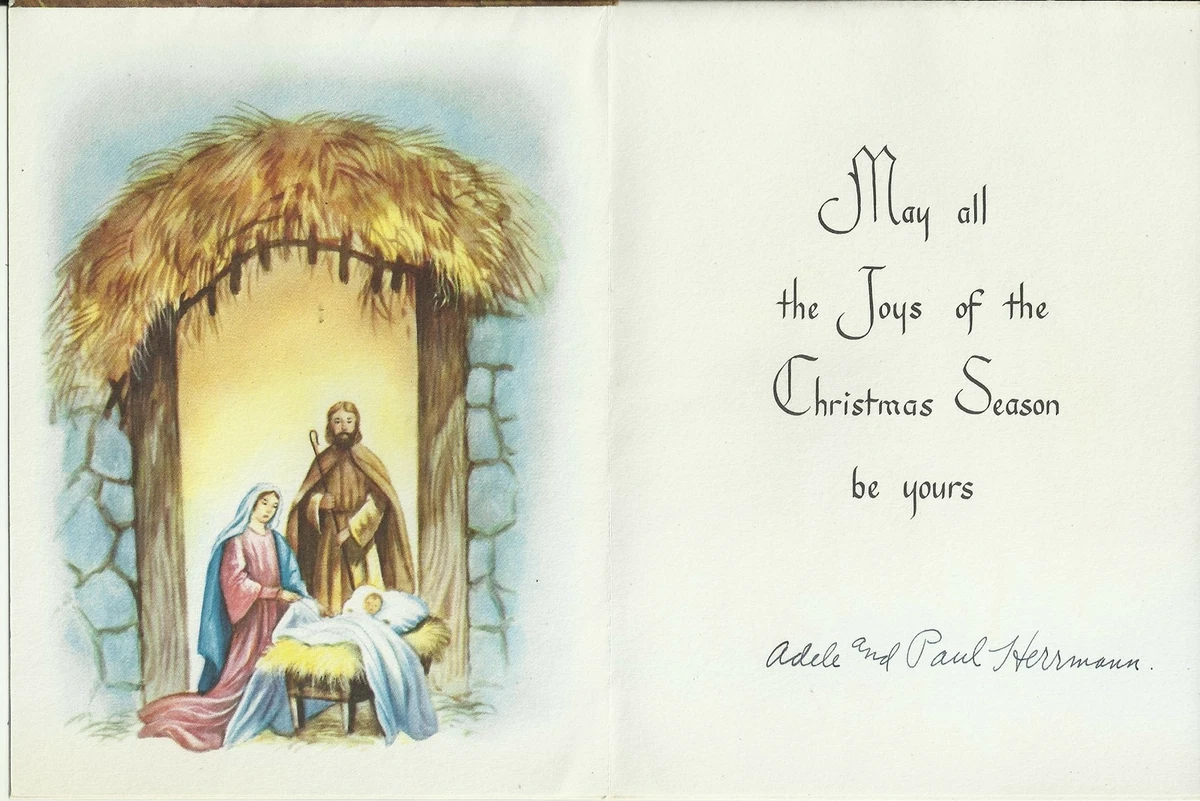 May all
the Joys of the
Christmas Season
be yours
Adele and Paul Herrmann.